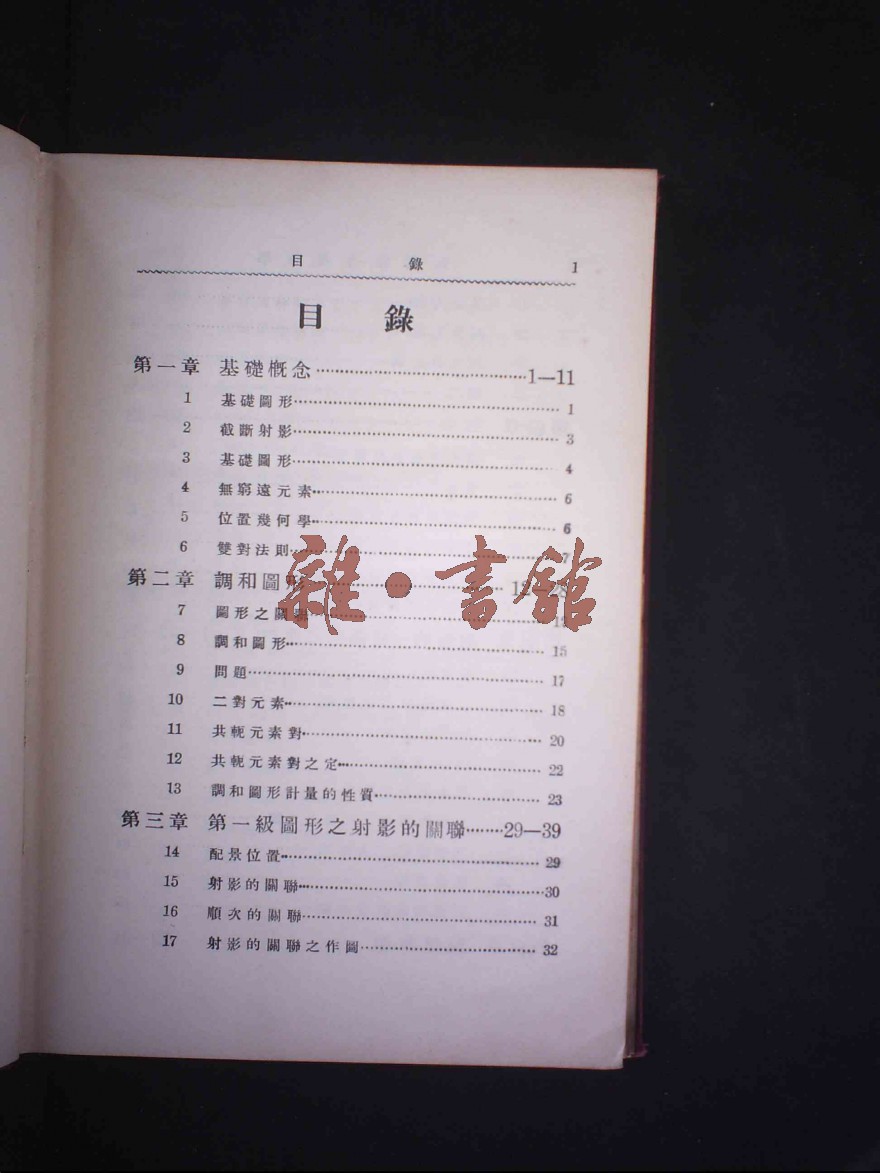 目 錄 1
目 錄
第一章 基礎概念……1—11
1 基礎圖形……1
2 截斷射影……3
3 基礎圖形……4
4 無窮遠元素……6
5 位置幾何學……6
6 雙對法則……7
第二章 調和圖形……
7 圖形之關……
8 調和圖形……15
9 問題……17
10 二對元素……18
11 共軛元素對……20
12 共軛元素對之定……22
13 調和圖形計量的性質……23
第三章 第一級圖形之射影的關聯……29—39
14 配景位置……29
15 射影的關聯……30
16 順次的關聯……31
17 射影的關聯之作圖……32
雜·書館